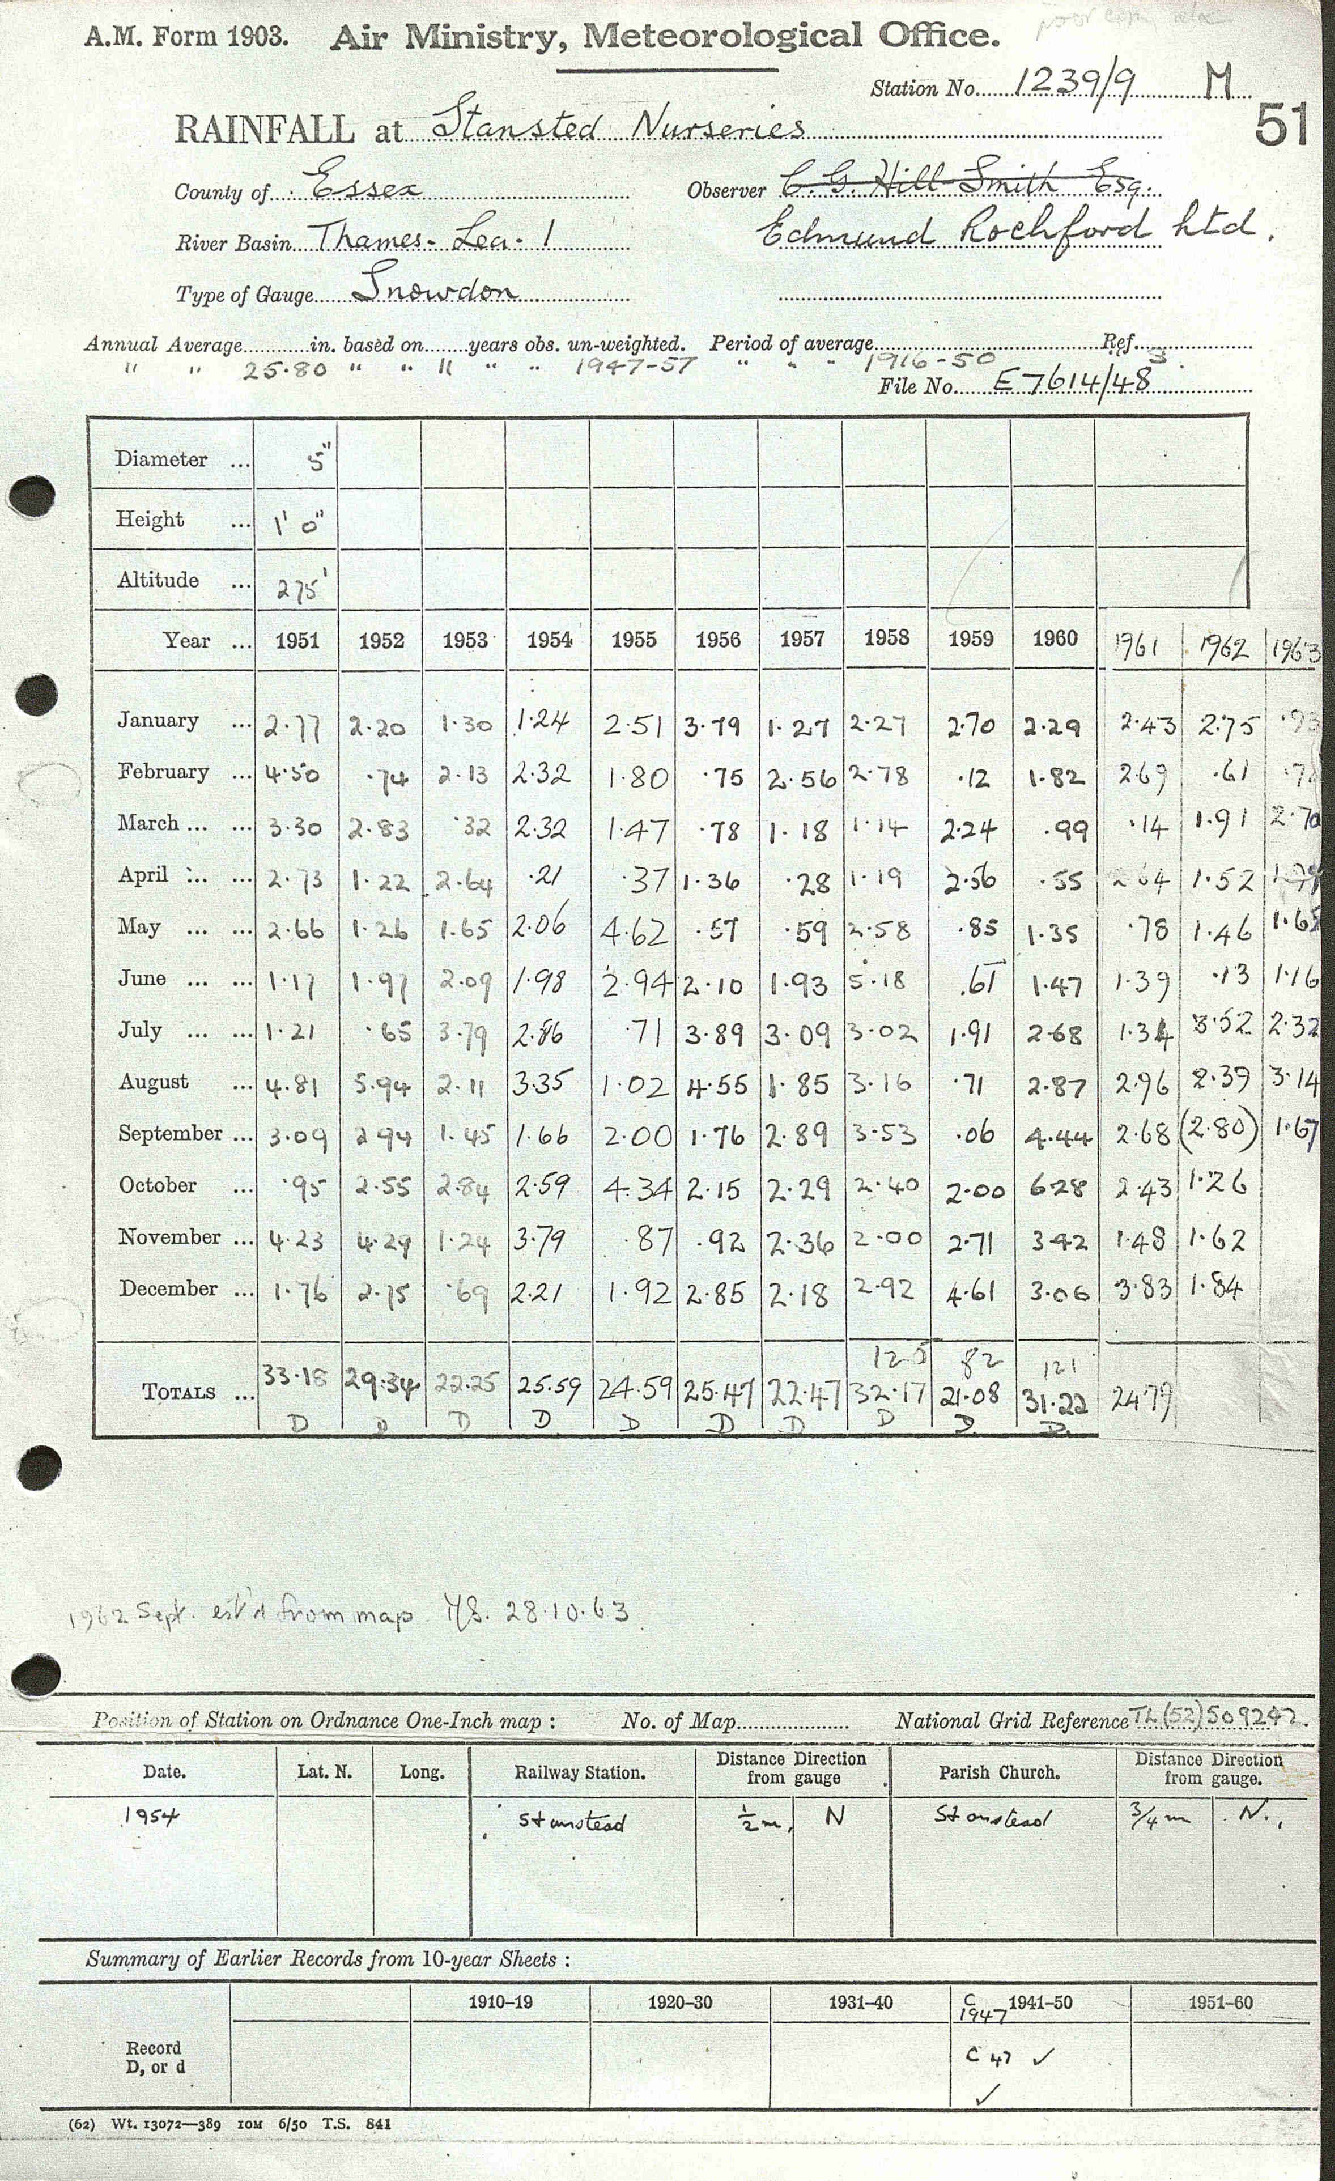 A.M. Form 1903. Air Ministry, Meteorological Office.
Station No. 1239/9 M
51
RAINFALL at Stansted Nurseries
County of Essex Observer C. G. Hill-Smith Esq.
River Basin Thames. Lea. 1 Edmund Rochford Ltd.
Type of Gauge Snowdon
Annual Average in. based on years obs. un-weighted. Period of average Ref.
" " 25.80 " " 11 " " 1947-57 " " " 1916-50 3.
File No. E7614/48
Diameter ... 5"
Height ... 1' 0"
Altitude ... 275'
Year ... 1951 1952 1953 1954 1955 1956 1957 1958 1959 1960 1961 1962 1963
January ... 2.77 2.20 1.30 1.24 2.51 3.79 1.27 2.27 2.70 2.29 2.43 2.75 .93
February ... 4.50 .74 2.13 2.32 1.80 .75 2.56 2.78 .12 1.82 2.69 .61
March ... ... 3.30 2.83 .32 2.32 1.47 .78 1.18 1.14 2.24 .99 .14 1.91 2.70
April ... ... 2.73 1.22 2.64 .21 .37 1.36 .28 1.19 2.56 .55 2.64 1.52
May ... ... 2.66 1.26 1.65 2.06 4.62 .57 .59 2.58 .85 1.35 .78 1.46 1.65
June ... ... 1.17 1.97 2.09 1.98 2.94 2.10 1.93 5.18 .61 1.47 1.39 .13 1.16
July ... ... 1.21 .65 3.79 2.86 .71 3.89 3.09 3.02 1.91 2.68 1.34 3.52 2.32
August ... 4.81 5.94 2.11 3.35 1.02 4.55 1.85 3.16 .71 2.87 2.96 2.39 3.14
September ... 3.09 2.94 1.45 1.66 2.00 1.76 2.89 3.53 .06 4.44 2.68 (2.80) 1.67
October ... .95 2.55 2.84 2.59 4.34 2.15 2.29 2.40 2.00 6.28 2.43 1.26
November ... 4.23 4.29 1.24 3.79 .87 .92 2.36 2.00 2.71 3.42 1.48 1.62
December ... 1.76 2.75 .69 2.21 1.92 2.85 2.18 2.92 4.61 3.06 3.83 1.84
125 82 121
TOTALS ... 33.18 29.34 22.25 25.59 24.59 25.47 22.47 32.17 21.08 31.22 24.79
D D D D D D D D D D.
1962 Sept. est'd from map. 28.10.63
Position of Station on Ordnance One-Inch map : No. of Map National Grid Reference TL(52)509242.
Date. Lat. N. Long. Railway Station. Distance Direction from gauge Parish Church. Distance Direction from gauge.
1954 Stanstead ½ m. N Stanstead 3/4 m N.
Summary of Earlier Records from 10-year Sheets :
1910–19 1920–30 1931–40 C 1947 1941–50 1951–60
Record D, or d C 47 ✓
✓
(62) Wt. 13072—389 10M 6/50 T.S. 841